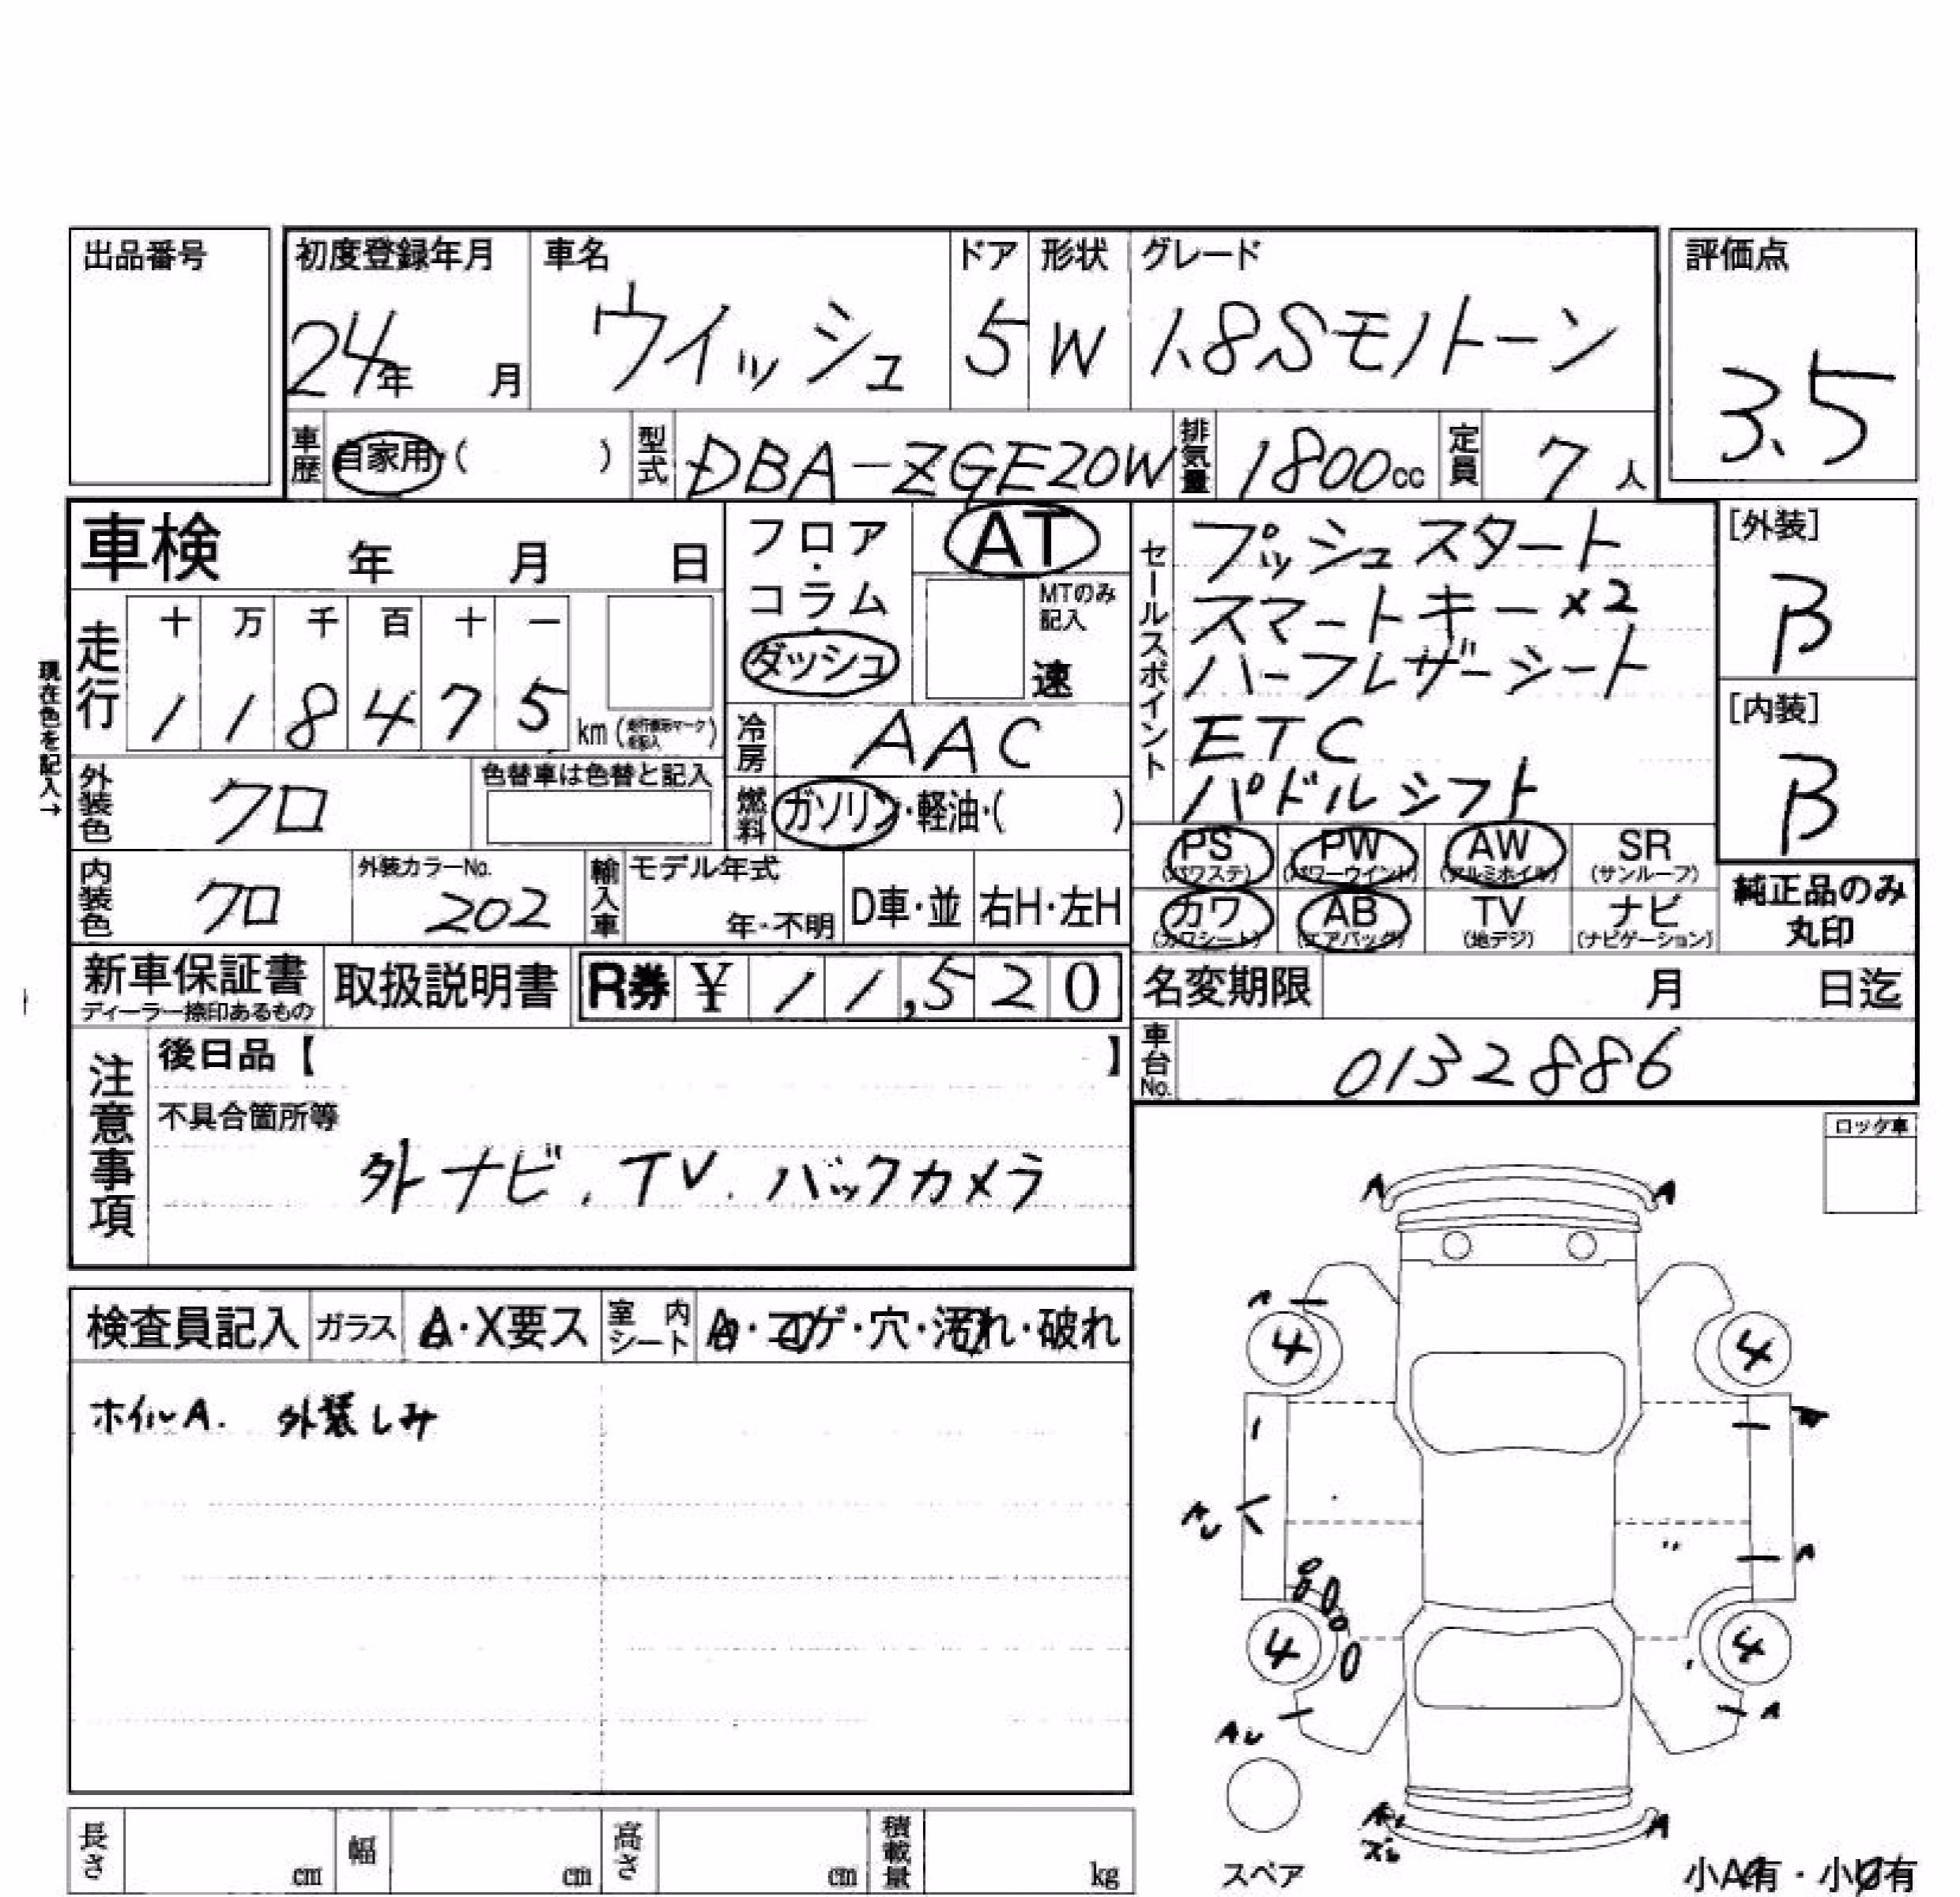 出品番号
初度登録年月 車名 ドア 形状 グレード 評価点
24年 月 ウイッシュ 5 W 1.8Sモノトーン 3.5
車歴 自家用・( ) 型式 DBA-ZGE20W 排気量 1800cc 定員 7人
車検 年 月 日
フロア・コラム・ダッシュ
AT
MTのみ記入
速
セールスポイント
プッシュスタート
スマートキー×2
ハーフレザーシート
ETC
パドルシフト
[外装]
B
[内装]
B
現在色を記入→
走行 十 万 千 百 十 一
1 1 8 4 7 5 km
冷房 AAC
外装色 クロ 色替車は色替と記入
燃料 ガソリン・軽油・( )
PS (パワステ) PW (パワーウインド) AW (アルミホイル) SR (サンルーフ)
カワ (カワシート) AB (エアバッグ) TV (地デジ) ナビ (ナビゲーション)
純正品のみ
丸印
内装色 クロ 外装カラーNo. 202 輸入車 モデル年式 年・不明 D車・並 右H・左H
新車保証書 取扱説明書 R券 ¥ 11,520
ディーラー捺印あるもの
名変期限 月 日迄
車台No. 0132886
注意事項
後日品【 】
不具合箇所等
外ナビ、TV、バックカメラ
ロック車
検査員記入 ガラス A・X要ス 室内シート A・コゲ・穴・汚れ・破れ
ホイルA. 外装しみ
A A
A
4 4
A
4 4
A
A
スペア
小A有・小U有
長さ cm 幅 cm 高さ cm 積載量 kg